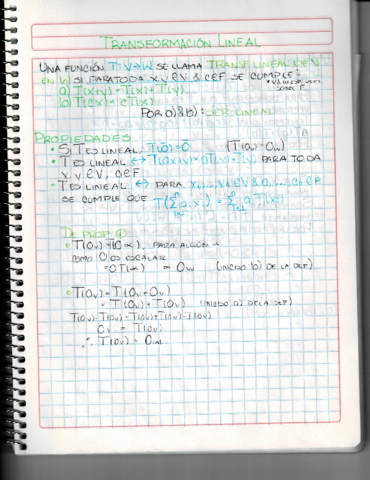 TRANSFORMACIÓN LINEAL
UNA FUNCIÓN T: V→W SE LLAMA TRANSF. LINEAL DE V
EN W SI PARA TODA x, y ∈ V & c ∈ F SE CUMPLE:
a) T(x+y) = T(x) + T(y)
b) T(cx) = cT(x)
POR a) & b): SER LINEAL
PROPIEDADES
• SI T ES LINEAL, T(0) = 0 (T(0v) = 0w)
• T ES LINEAL ↔ T(ax+y) = aT(x) + T(y), PARA TODA
x, y ∈ V, a ∈ F
• T ES LINEAL ↔ PARA x₁,...,xₙ ∈ V & a₁,...,aₙ ∈ F
SE CUMPLE QUE T(Σ aᵢxᵢ) = Σ aᵢT(xᵢ)
DE PROP ①
• T(0v) = T(0x), PARA ALGÚN x
COMO 0 ES ESCALAR
= 0T(x) = 0w (INCISO b) DE LA DEF)
• T(0v) = T(0v + 0v)
= T(0v) + T(0v) (INCISO a) DE LA DEF)
T(0v) - T(0v) = T(0v) + T(0v) - T(0v)
0v = T(0v)
∴ T(0v) = 0w